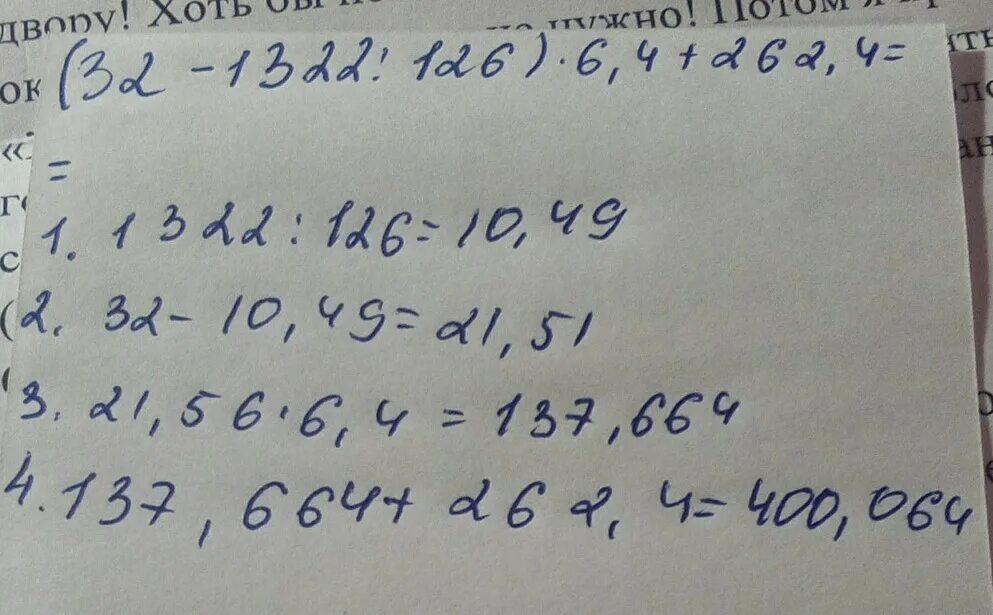 двору! Хоть
нужно! Потом я
ок
(32 - 1322 : 126) · 6,4 + 262,4 =
=
1. 1322 : 126 = 10,49
с
2. 32 - 10,49 = 21,51
3. 21,56 · 6,4 = 137,664
4. 137,664 + 262,4 = 400,064